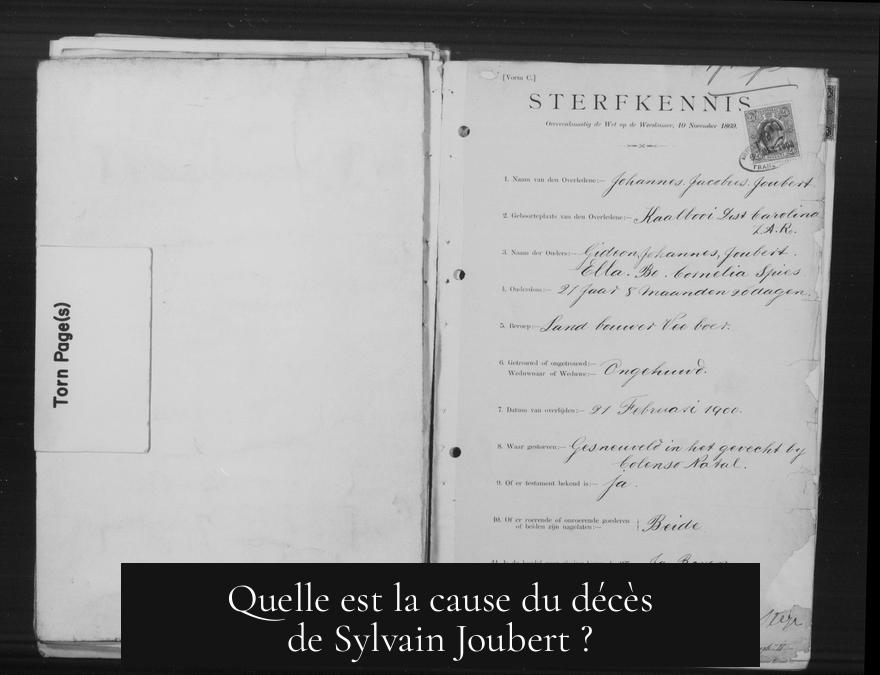 Torn Page(s)
[Vorm C.]
STERFKENNIS
Overeenkomstig de Wet op de Weeskamer, 10 November 1869.
1. Naam van den Overledene:— Johannes Jacobus Joubert
2. Geboorteplaats van den Overledene:— Kaalbooi Dist Carolina
Z.A.R.
3. Naam der Ouders:— Gideon Johannes, Joubert.
Ella. Cornelia Spies
4. Ouderdom:— 21 Jaar 8 Maanden dagen.
5. Beroep:— Land bouwer Vee boer.
6. Getrouwd of ongetrouwd:—
Weduwnaar of Weduwe:— Ongehuwd.
7. Datum van overlijden:— 21 Februari 1900.
8. Waar gestorven:— Gesneuveld in het gevecht by
Colenso Natal.
9. Of er testament bekend is:— ja.
10. Of er roerende of onroerende goederen
of beiden zijn nagelaten:— } Beide
Quelle est la cause du décès
de Sylvain Joubert ?